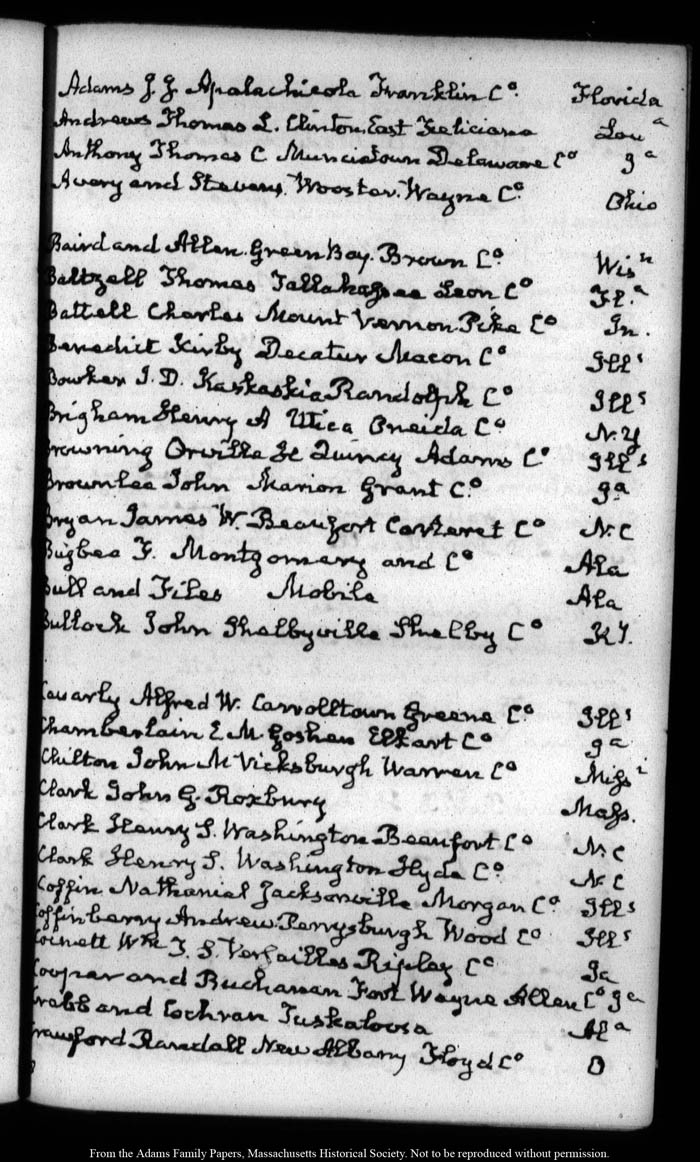 Adams J. J. Apalachicola Franklin Co. Florida
Andrews Thomas L. Clinton, East Feliciana Lou a
Anthony Thomas C Munciatown Delaware Co Ja
Avery and Stevens, Wooster. Wayne Co. Ohio
Baird and Allen. Green Bay. Brown Co. Wisn
Baltzell Thomas Tallahassee Leon Co Fl.a
Battell Charles Mount Vernon Pike Co In.
Benedict Kirby Decatur Macon Co Ills
Bowker J. D. Kaskaskia Randolph Co Ills
Brigham Henry A Utica Oneida Co. N.Y
Browning Orville H Quincy Adams Co Ills
Brownlee John Marion Grant Co. Ja
Bryan James W. Beaufort Carteret Co N.C
Bugbee F. Montgomery and Co Ala
Bull and Files Mobile Ala
Bullock John Shelbyville Shelby Co Ky.
Cavarly Alfred W. Carrolltown Greene Co. Ills
Chamberlain E. M. Goshen Elkart Co Ja
Chilton John M Vicksburgh Warren Co Missi
Clark John G. Roxbury Mass.
Clark Henry S. Washington Beaufort Co N. C
Clark Henry S. Washington Hyde Co. N. C
Coffin Nathaniel Jacksonville Morgan Co. Ills
Coffinberry Andrew. Perrysburgh Wood Co Ills
Wm T. S. Versailles Ripley Co Ja
Cooper and Buchanan Fort Wayne Allen Co Ja
Crabb and Cochran Tuskaloosa Al a
Crawford Randall New Albany Floyd Co O
From the Adams Family Papers, Massachusetts Historical Society. Not to be reproduced without permission.